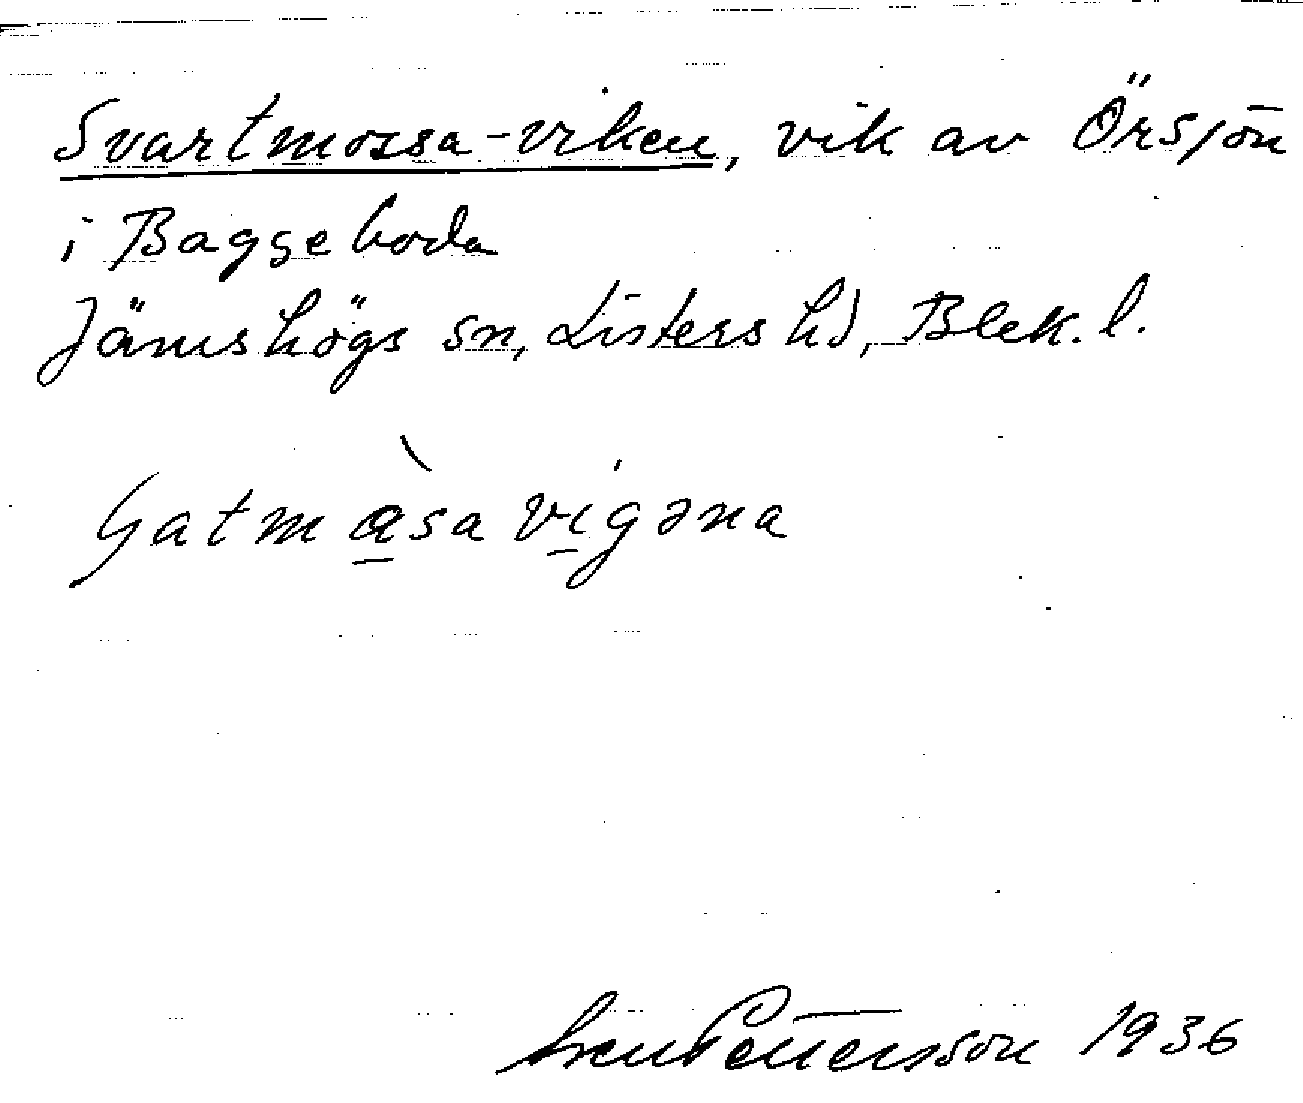 Svartmossa-viken, vik av Örsjön
i Baggeboda
Jämshögs sn, Listers hd, Blek. l.
Satmàsa vígəna
Sven Pettersson 1936